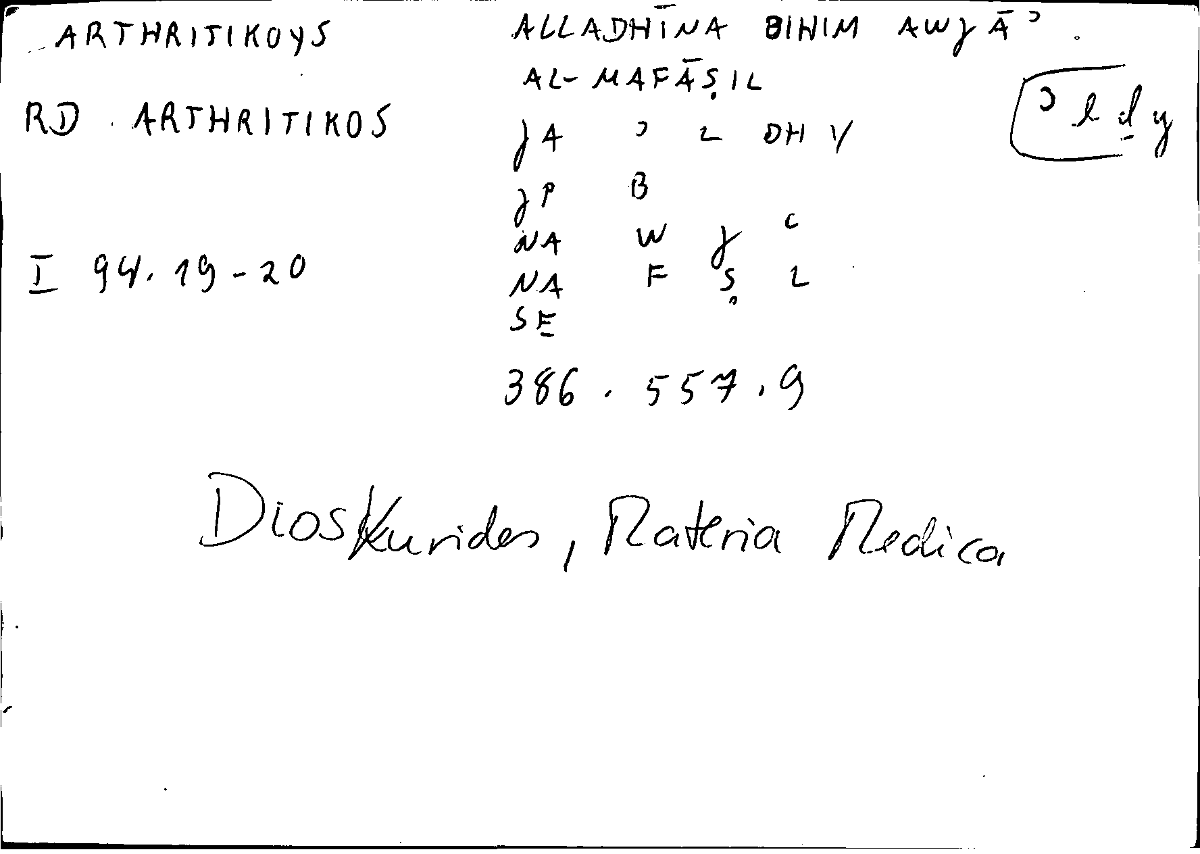 ARTHRITIKOYS
RD ARTHRITIKOS
I 94.19-20
ALLADHĪNA BIHIM AWJĀʾ
AL-MAFĀṢIL
JA ʾ L DH Y
JP B
NA W J ʿ
NA F Ṣ L
SE
386.557.9
ʾ l ḏ y
Dioskurides, Materia Medica